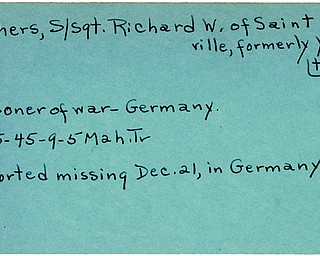 ners, S/Sgt. Richard W. of Saint
ville, formerly
oner of war - Germany.
5-45-9-5 Mah.Tr
orted missing Dec. 21, in Germany